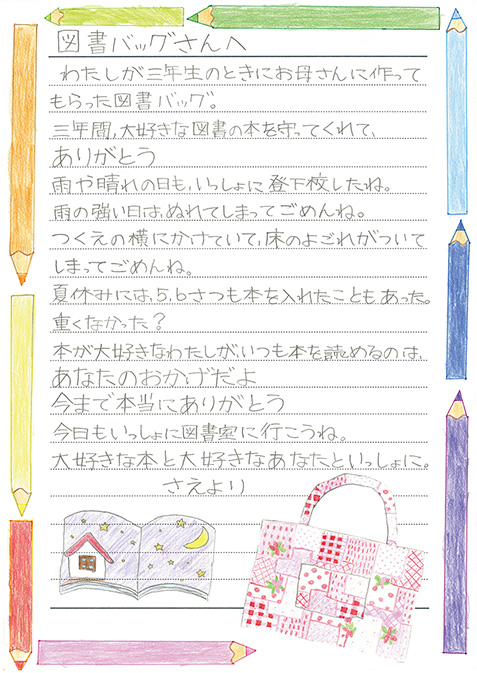 図書バッグさんへ
わたしが三年生のときにお母さんに作って
もらった図書バッグ。
三年間,大好きな図書の本を守ってくれて、
ありがとう
雨や晴れの日も,いっしょに登下校したね。
雨の強い日は,ぬれてしまってごめんね。
つくえの横にかけていて,床のよごれがついて
しまってごめんね。
夏休みには,5,6さつも本を入れたこともあった。
重くなかった？
本が大好きなわたしが,いつも本を読めるのは,
あなたのおかげだよ
今まで本当にありがとう
今日もいっしょに図書室に行こうね。
大好きな本と大好きなあなたといっしょに。
さえより